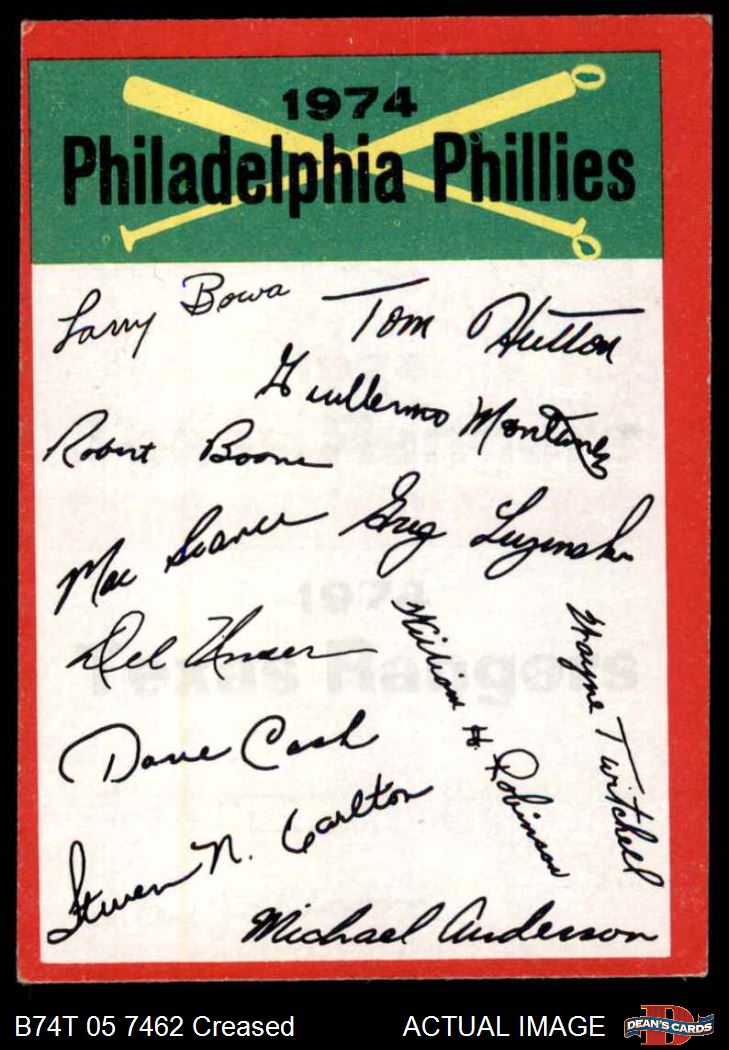 1974
Philadelphia Phillies
Larry Bowa
Tom Hutton
Guillermo Montanez
Robert Boone
Mac Scarce
Greg Luzinski
Del Unser
William H. Robinson
Wayne Twitchell
Dave Cash
Steven N. Carlton
Michael Anderson
1974
Texas Rangers
B74T 05 7462 Creased
ACTUAL IMAGE
DEAN'S CARDS